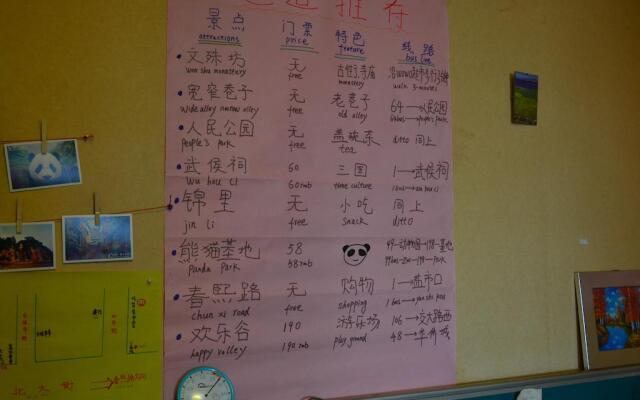 推荐
景点 门票 特色 线路
attractions price feature bus line
文殊坊 无
wen shu monastery free monastery walk 3 minutes
宽窄巷子 无 老巷子 64→人民公园
wide alley narrow alley free old alley
人民公园 无 盖碗茶 ditto 同上
people's park free tea
武侯祠 60 三国 1→武侯祠
wu hou ci 60rmb three culture 1 bus→wu hou ci
锦里 无 小吃 同上
jin li free snack ditto
熊猫基地 58
panda park 58rmb
春熙路 无 购物 1→盐市口
chun xi road free shopping 1 bus→yan shi kou
欢乐谷 190 游乐场 106→交大路西
happy valley 190 rmb play ground 48→华侨城